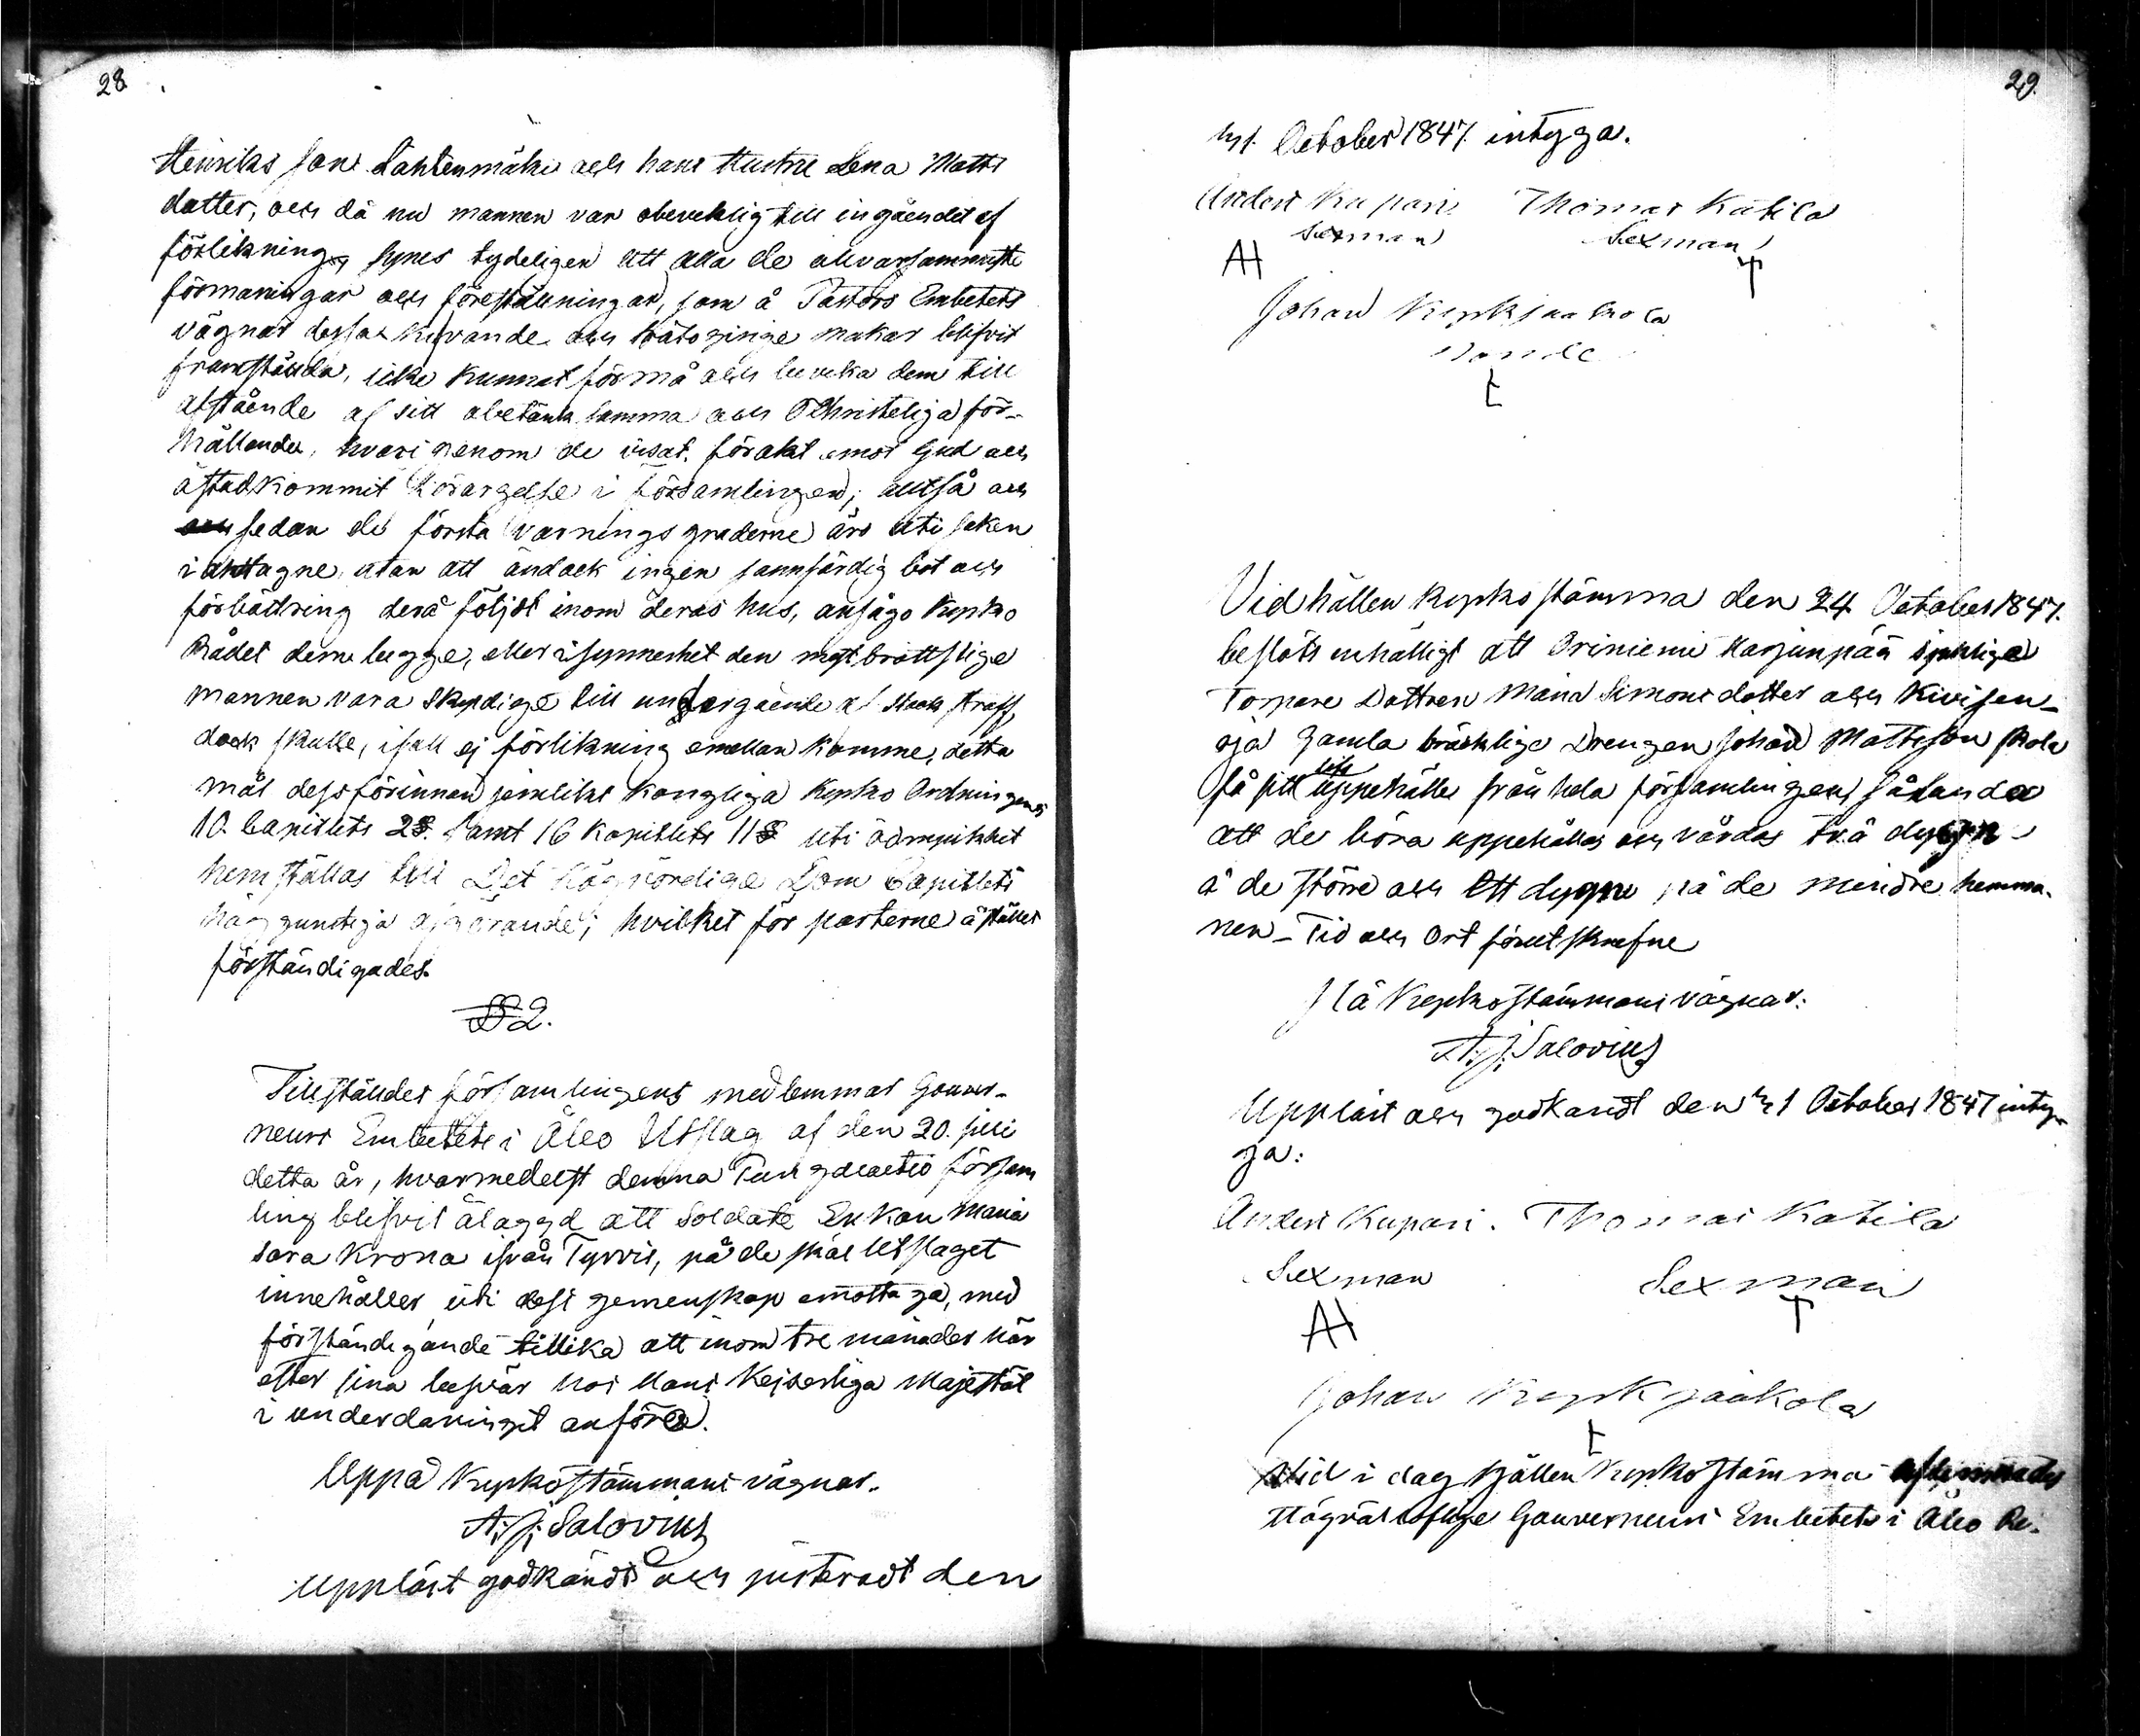 28.
Henriks son Lähteenmäki och hans Hustru Lena Matts
dotter, och då nu mannen var obeveklig till ingåendet af
förlikning, synes tydeligen att alla de alvarsammaste
förmaningar och föreställningar, som å Pastors Embetets
vägnar dessa kifvande och trätogirige makar blifvit
framställda, icke kunnat förmå och beveka dem till
afstående af sitt obetänksamma och OChristeliga för-
hållande, hvarigenom de visat förakt emot Gud och
åstadkommit förargelse i församlingen; alltså och
sedan de första varnings graderne äro uti saken
i akttagne, utan att ändock ingen sannfärdig bot och
förbättring derå följdt inom deras hus, ansågo Kyrko
Rådet dem begge, eller isynnerhet den mestbrottslige
mannen vara skyldige till undergående af Stock straff,
dock skulle, ifall ej förlikning emellan komme, detta
mål dessförinnan jemlikt Kongliga Kyrko Ordningens
10. Capitlets 2 §. samt 16 Kapitlets 11 § uti ödmjukhet
hemställas till Det Högvördige Dom Capitlets
höggunstiga afgörande; hvilket för parterne å stället
förständigades.
§ 2.
Tillständes församlingens medlemmar Gouver-
neurs Embetets i Åbo Utslag af den 20. juli
detta år, hvarmedelst denna församm
ling blifvit ålaggd att Soldats Enkan Maria
Sara Krona ifrån Tyrvis, på de skäl Utslaget
innehåller, uti dess gemenskap emottaga, med
förständigande tillika att inom tre månader här
efter sina besvär hos Hans Kejserliga Majestät
i underdånighet anföra.
Uppå Kyrkostämmans vägnar.
A. J. Salovius
Uppläst godkändt och justeradt den
29.
31. October 1847. intyga.
Anders Kupari Thomas Katila
Sexman Sexman
AH
Johan Kyrkjaakola
Vid hållen Kyrkostämma den 24 October 1847.
beslöts enhälligt att Oriniemi Harjunpää sjuklige
Torpare Dottren Maria Simonsdotter och Kivisen-
oja gamla bräcklige Drengen Johan Mattsson skola
få sitt lifs uppehälle från hela församlingen, sålunda
att de böra uppehållas och vårdas två dygn
å de större och Ett dygn på de mindre hemma-
nen - Tid och Ort förutskrefne
På Kyrkostämmans vägnar:
A. J. Salovius
Uppläst och godkändt den 31 October 1847 inty-
ga:
Anders Kupari. Thomas Katila
Sexman Sexman
AH
Johan Kyrkjaakola
Vid i dag hållen Kyrkostämma
Högvälloflige Gouverneurs Embetets i Åbo Re-